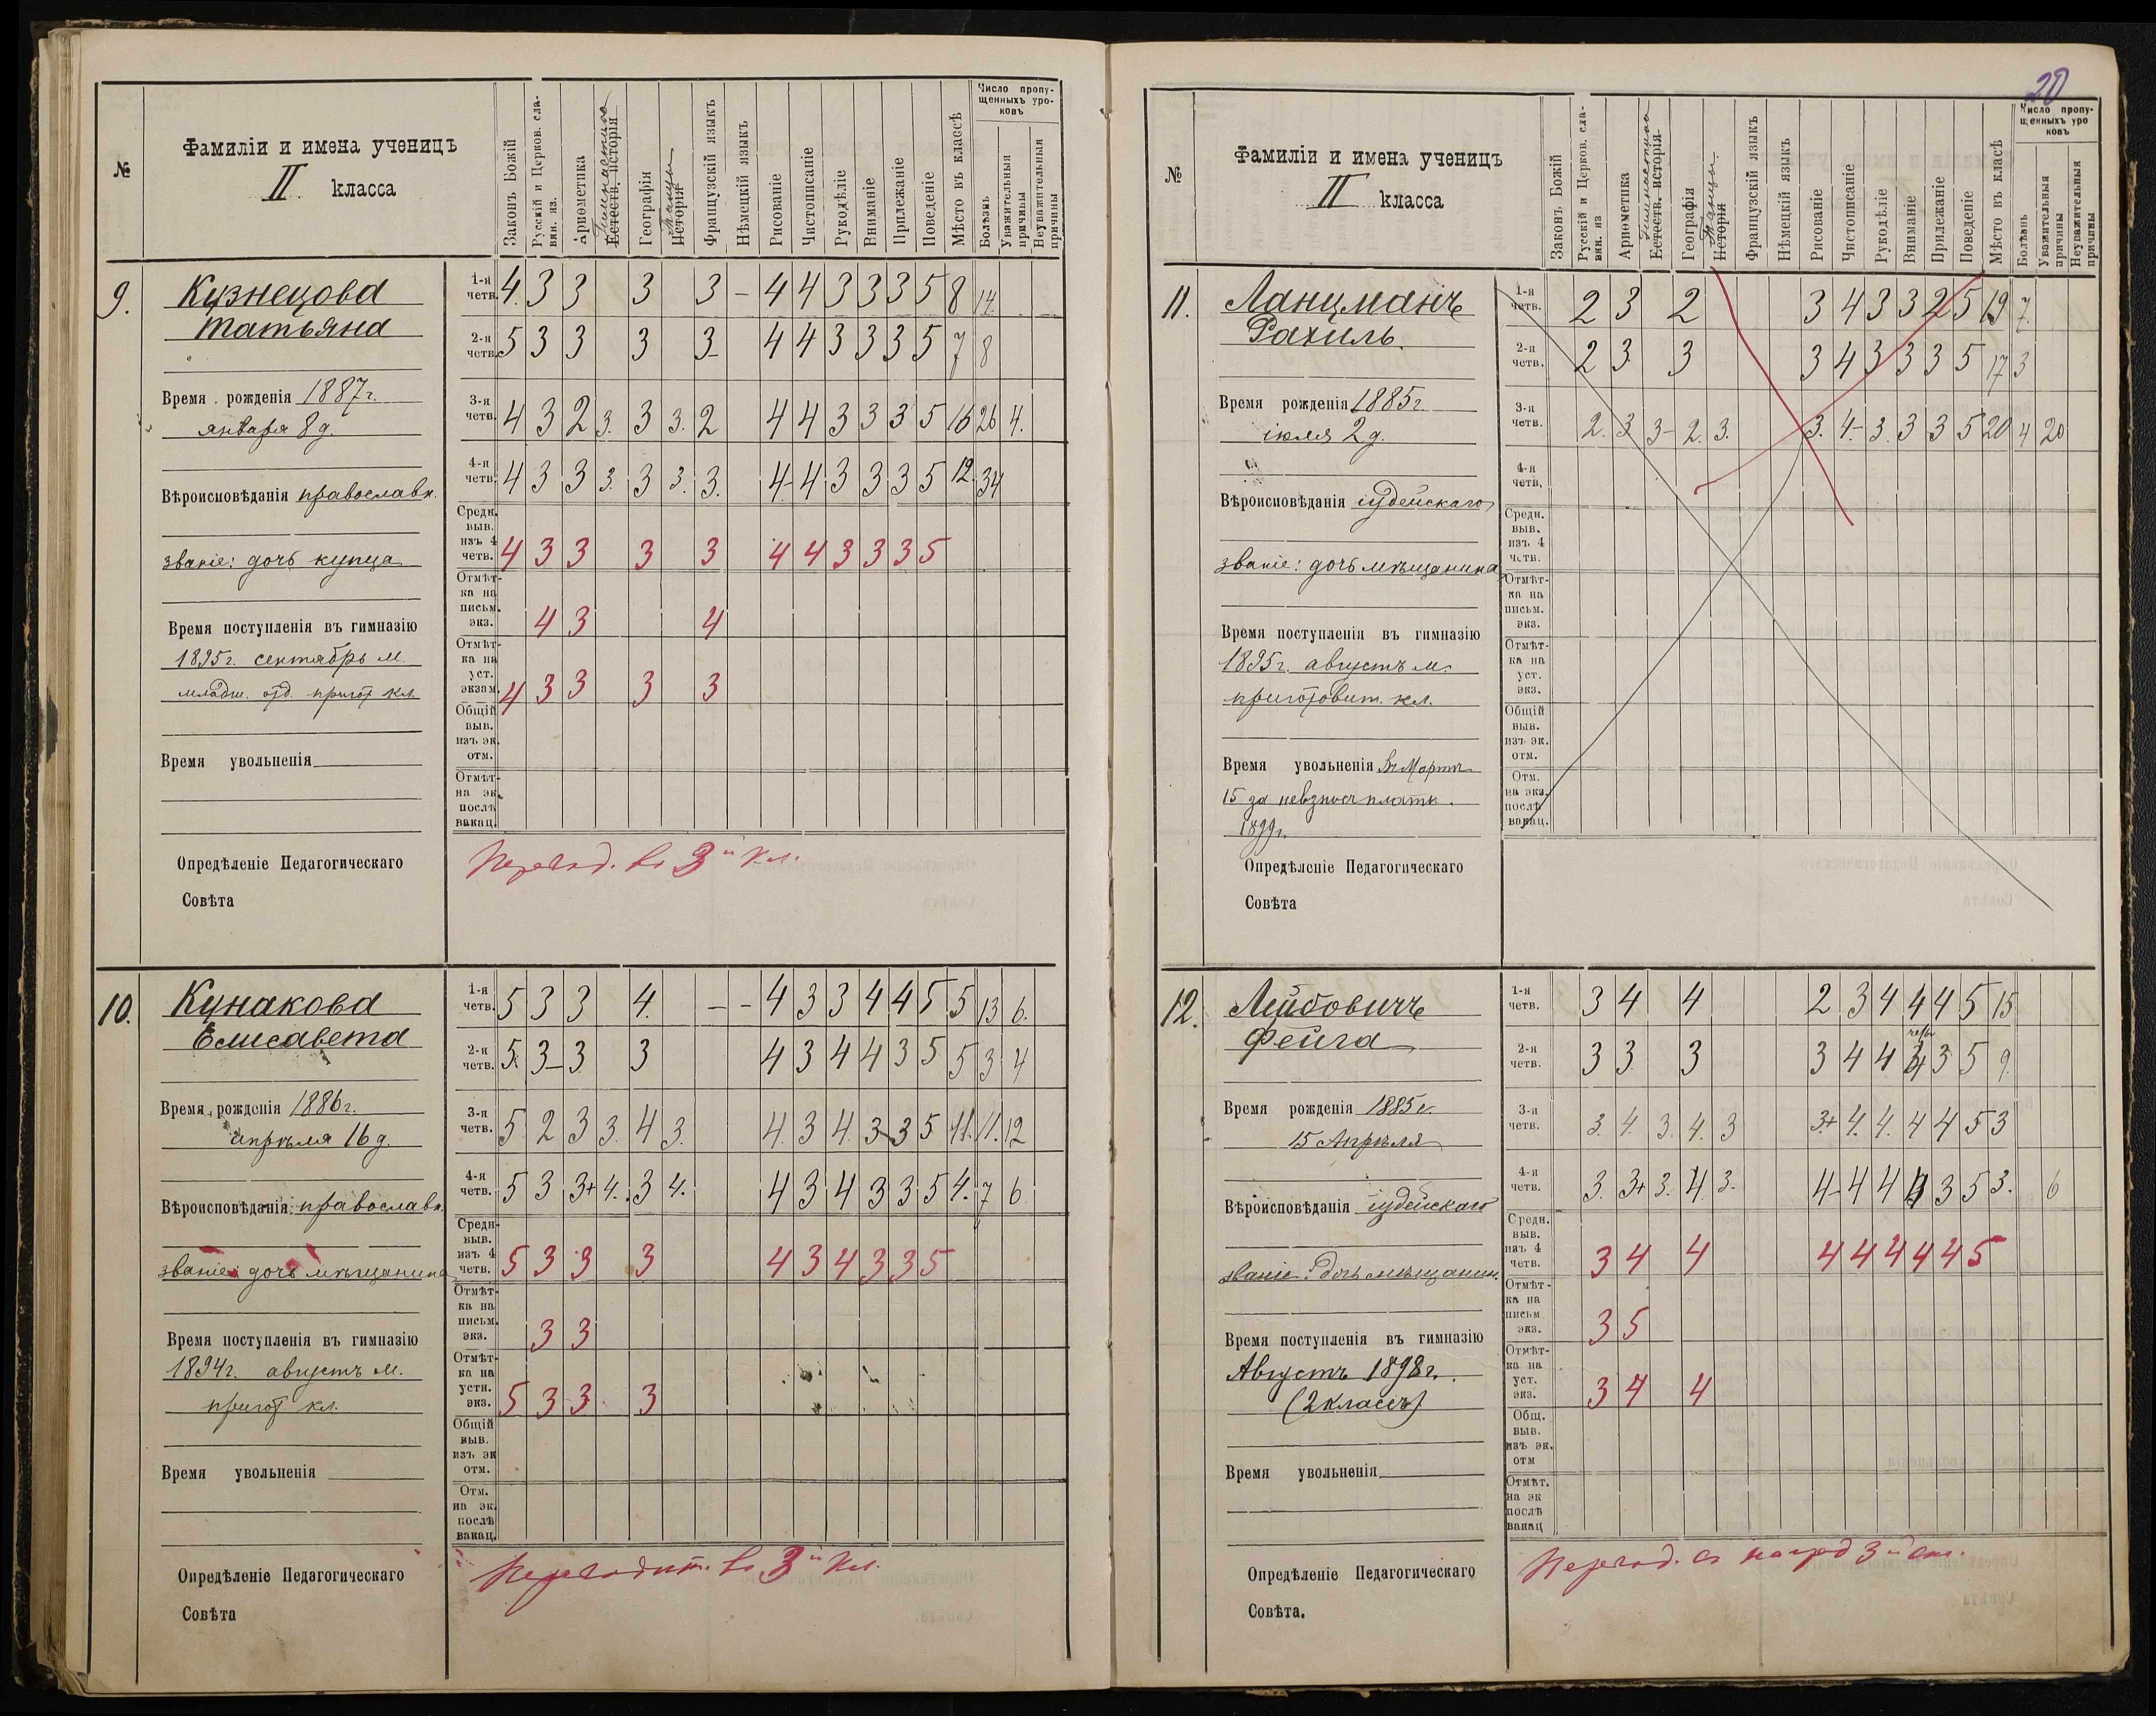 №
Фамиліи и имена ученицъ
II класса
Законъ Божій
Русскій и Церков. сла-
вян. яз.
Ариѳметика
Гимнастика
Естеств. исторія
Географія
Танцы
Исторія
Французскій языкъ
Нѣмецкій языкъ
Рисованіе
Чистописаніе
Рукодѣліе
Вниманіе
Прилежаніе
Поведеніе
Мѣсто въ классѣ
Число пропу-
щенныхъ уро-
ковъ
Болѣзнь
Уважительныя
причины
Неуважительныя
причины
9.
Кузнецова
Татьяна
Время рожденія 1887г.
января 8 д.
Вѣроисповѣданія православн.
званіе: дочь купца
Время поступленія въ гимназію
1895г. сентябрь м.
младш. отд. пригот. кл.
Время увольненія
1-я четв. 4. 3 3 3 3 – 4 4 3 3 3 5 8 14.
2-я четв. 5 3 3 3 3 4 4 3 3 3 5 7 8
3-я четв. 4 3 2 3. 3 3. 2 4 4 3 3 3 5 16 26 4.
4-я четв. 4 3 3 3. 3 3. 3. 4 4 3 3 3 5 12. 34
Средн. выв. изъ 4 четв. 4 3 3 3 3 4 4 3 3 3 5
Отмѣт-ка на письм. экз. 4 3 4
Отмѣт-ка на уст. экзам. 4 3 3 3 3
Общій выв. изъ эк. отм.
Отмѣт. на эк. послѣ вакац.
Опредѣленіе Педагогическаго
Совѣта
Переход. въ 3й кл.
10.
Кунакова
Елисавета
Время рожденія 1886г.
апрѣля 16 д.
Вѣроисповѣданія: православн.
званіе: дочь мѣщанина
Время поступленія въ гимназію
1894г. августъ м.
пригот. кл.
Время увольненія
1-я четв. 5 3 3 4. – – 4 3 3 4 4 5 5 13 6.
2-я четв. 5 3 3 3 4 3 4 4 3 5 5 3 4
3-я четв. 5 2 3 3. 4 3. 4. 3 4. 3 3 5 11. 11. 12
4-я четв. 5 3 3+ 4. 3 4. 4 3 4 3 3 5 4. 7 6
Средн. выв. изъ 4 четв. 5 3 3 3 4 3 4 3 3 5
Отмѣт-ка на письм. экз. 3 3
Отмѣт-ка на устн. экз. 5 3 3 3
Общій выв. изъ эк отм.
Отм. на эк. послѣ вакац.
Опредѣленіе Педагогическаго
Совѣта
Переходит. въ 3й кл.
20
№
Фамиліи и имена ученицъ
II класса
Законъ Божій
Русскій и Церков. сла-
вян. яз
Ариѳметика
Гимнастика
Естеств. исторія
Географія
Танцы
Исторія
Французскій языкъ
Нѣмецкій языкъ
Рисованіе
Чистописаніе
Рукодѣліе
Вниманіе
Прилежаніе
Поведеніе
Мѣсто въ класѣ
Число пропу-
щенныхъ уро
ковъ
Болѣзнь
Уважительныя
причины
Неуважительныя
причины
11.
Ланцманъ
Рахиль.
Время рожденія 1885г.
іюля 2 д.
Вѣроисповѣданія іудейскаго
званіе: дочь мѣщанина
Время поступленія въ гимназію
1895г. августъ м.
приготовит. кл.
Время увольненія въ Мартѣ
15 за невзносъ платы.
1899г.
1-я четв. 2 3 2 3 4 3 3 2 5 19 7.
2-я четв. 2 3 3 3 4 3 3 3 5 17 3
3-я четв. 2. 3 3– 2. 3. 3. 4– 3. 3 3 5 20 4 20
4-я четв.
Средн. выв. изъ 4 четв.
Отмѣт-ка на письм. экз.
Отмѣт-ка на уст. экз.
Общій выв. изъ эк. отм.
Отм. на экз. послѣ вакац.
Опредѣленіе Педагогическаго
Совѣта
12.
Лейбовичъ
Фейга
Время рожденія 1885г.
15 Апрѣля
Вѣроисповѣданія іудейскаго
званіе: дочь мѣщанин.
Время поступленія въ гимназію
Августъ 1898г.
(2 классъ)
Время увольненія
1-я четв. 3 4 4 2 3 4 4 4 5 15
2-я четв. 3 3 3 3 4 4 3 5 9.
3-я четв. 3. 4. 3. 4. 3 3+ 4. 4. 4 4 5 3
4-я четв. 3. 3+ 3. 4. 3. 4– 4 4 4 3 5 3. 6
Средн. выв. изъ 4 четв. 3 4 4 4 4 4 4 4 5
Отмѣт-ка на письм экз. 3 5
Отмѣт-ка на уст. экз. 3 4 4
Общ. выв. изъ эк. отм
Отмѣт. на эк послѣ вакац
Опредѣленіе Педагогическаго
Совѣта.
Переход. съ наград 3й кл.